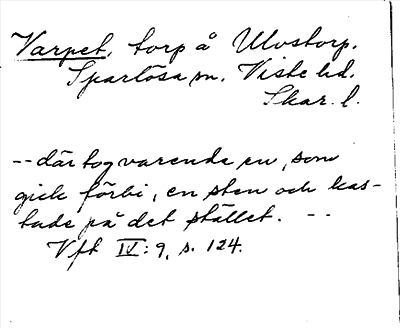 Varpet, torp å Ulvstorp,
Sparlösa sn. Viste hd.
Skar. l.
-- där tog varende en, som
gick förbi, en sten och kas-
tade på det stället. --
Vft IV: 9, s. 124.